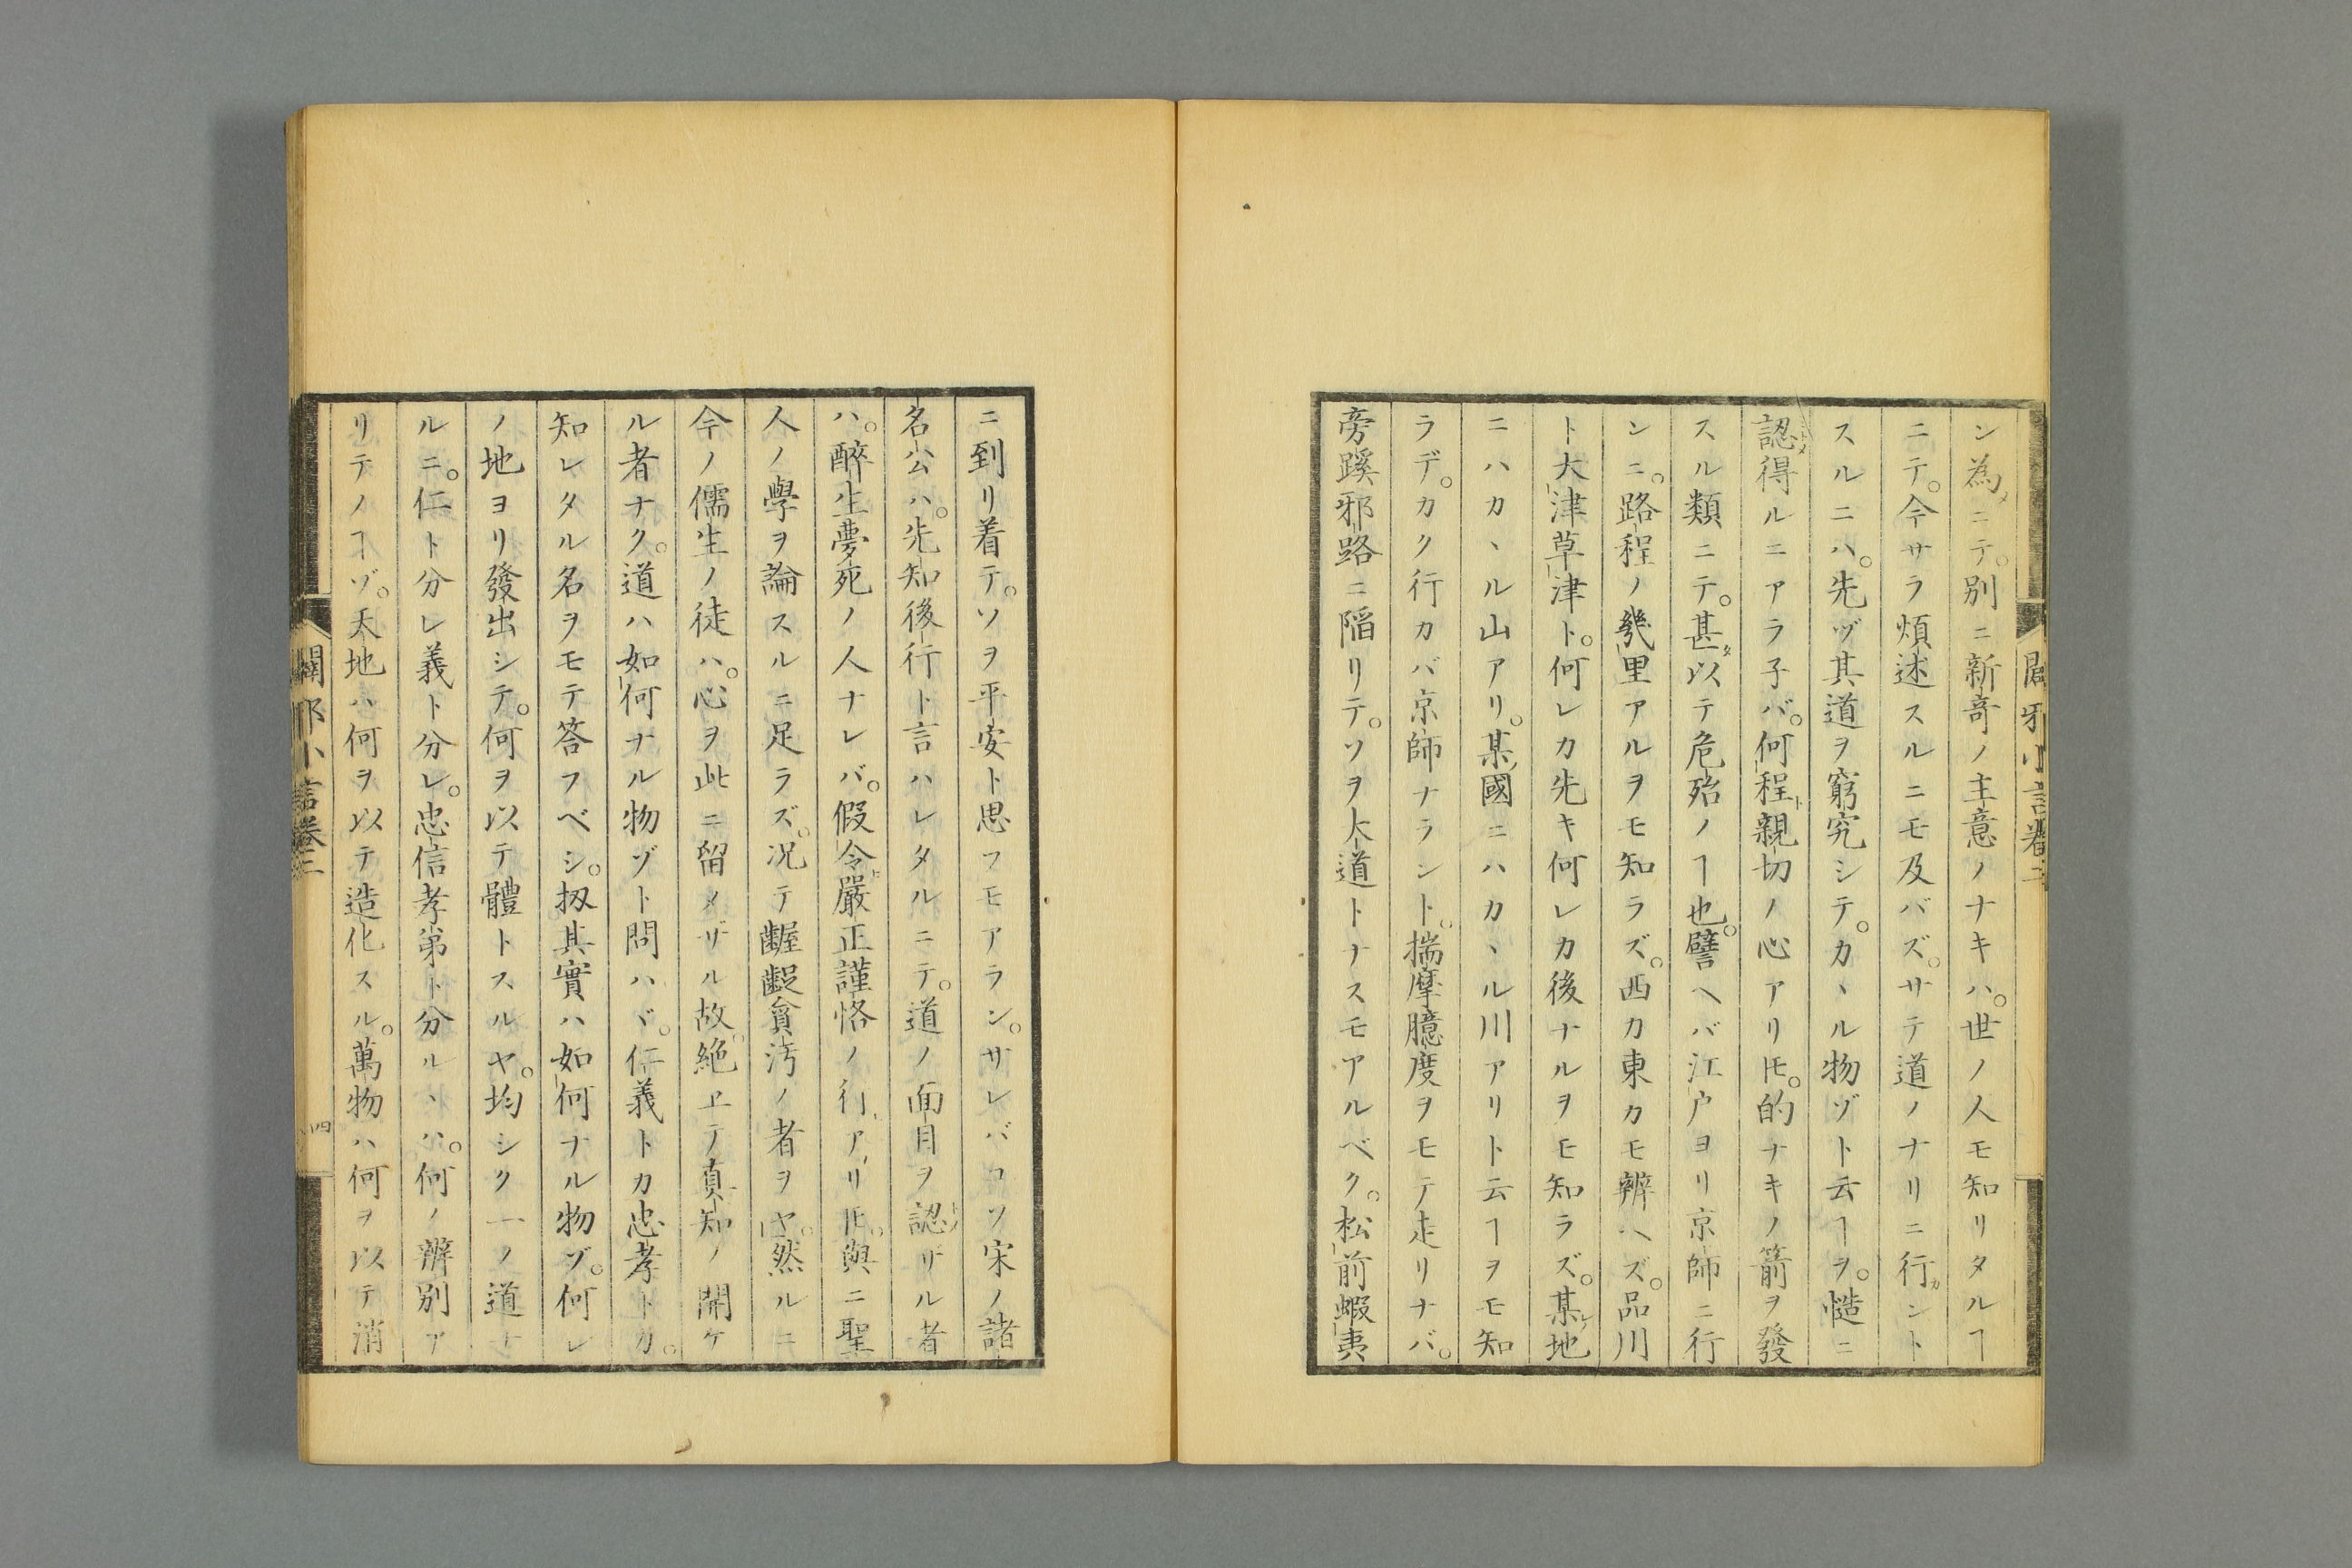 ン為ニテ。別ニ新奇ノ主意ノナキハ。世ノ人モ知リタルヿ
ニテ。今サラ煩述スルニモ及バズ。サテ道ノナリニ行ント
スルニハ。先ヅ其道ヲ窮究シテ。カヽル物ゾト云ヿヲ。慥ニ
認得ルニアラ子バ。何程親切ノ心アリ𪜈。的ナキノ箭ヲ發
スル類ニテ。甚以テ危殆ノヿ也。譬ヘバ江戸ヨリ京師ニ行
ンニ。路程ノ幾里アルヲモ知ラズ。西カ東カモ辨ヘズ。品川
ト大津草津ト。何レカ先キ何レカ後ナルヲモ知ラズ。某地
ニハカヽル山アリ。某國ニハカヽル川アリト云ヿヲモ知
ラデ。カク行カバ京師ナラント。揣摩臆度ヲモテ走リナバ。
旁蹊邪路ニ陷リテ。ソヲ大道トナスモアルベク。松前蝦夷
ニ到リ着テ。ソヲ平安ト思フモアラン。サレバコソ宋ノ諸
名公ハ。先知後行ト言ハレタルニテ。道ノ面目ヲ認ザル者
ハ。醉生夢死ノ人ナレバ。假令嚴正謹恪ノ行アリ𪜈。與ニ聖
人ノ學ヲ論スルニ足ラズ。况テ齷齪貪汚ノ者ヲヤ。然ルニ
今ノ儒生ノ徒ハ。心ヲ此ニ留メザル故。絶エテ真知ノ開ケ
ル者ナク。道ハ如何ナル物ゾト問ハヾ。仁義トカ忠孝トカ。
知レタル名ヲモテ答フベシ。扨其實ハ如何ナル物ゾ。何レ
ノ地ヨリ發出シテ。何ヲ以テ體トスルヤ。均シク一ノ道ナ
ルニ。仁ト分レ義ト分レ。忠信孝弟ト分ルヽハ。何ノ辨別ア
リテノヿゾ。天地ハ何ヲ以テ造化スル。萬物ハ何ヲ以テ消
闢邪小言卷二
四